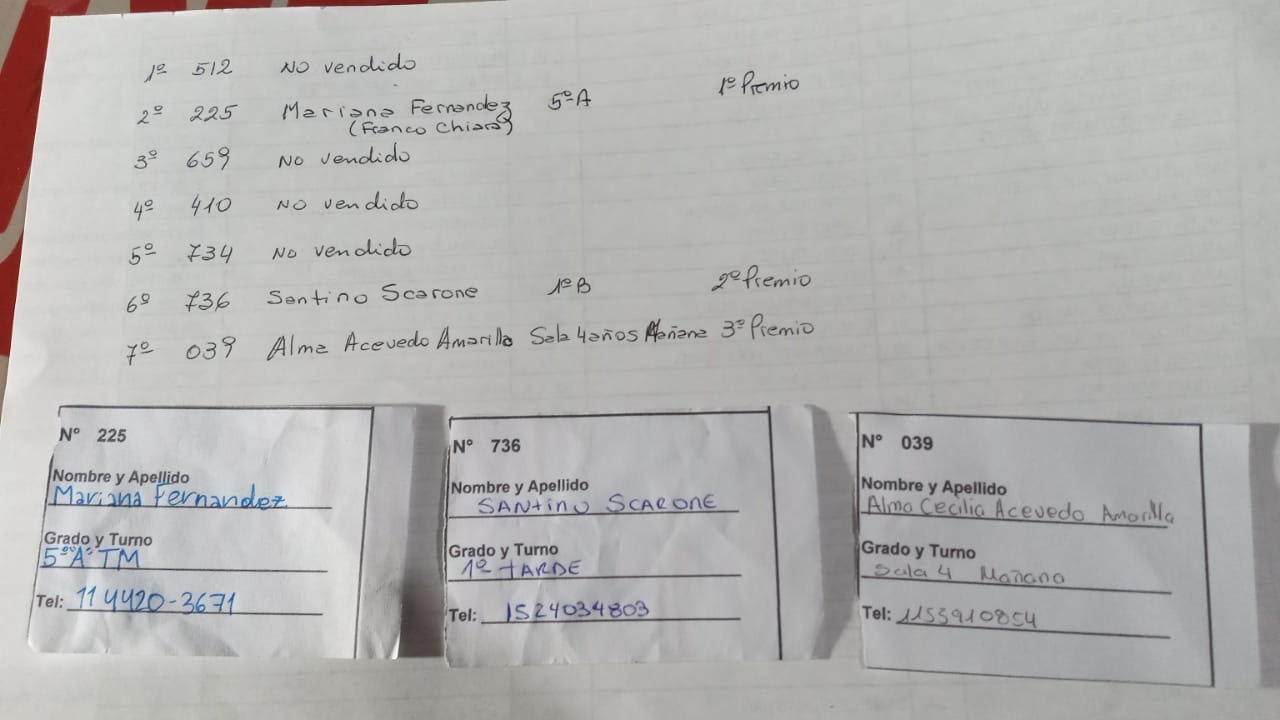 1º 512 No vendido
2º 225 Mariana Fernandez 5º A 1º Premio
(Franco Chiara)
3º 659 No vendido
4º 410 No vendido
5º 734 No vendido
6º 736 Santino Scarone 1º B 2º Premio
7º 039 Alma Acevedo Amarilla Sala 4 años Mañana 3º Premio
Nº 225
Nombre y Apellido
Mariana Fernandez
Grado y Turno
5º "A" TM
Tel: 11 4420-3671
Nº 736
Nombre y Apellido
SANtiNO SCARONE
Grado y Turno
1º tARDE
Tel: 1524034803
Nº 039
Nombre y Apellido
Alma Cecilia Acevedo Amarilla
Grado y Turno
Sala 4 Mañana
Tel: 1153910854